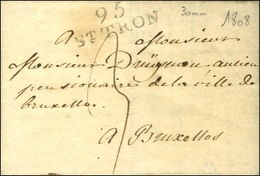 95
ST TRON
30mm
1808
A Monsieur
Monsieur ancien
pensionaire de la ville de
bruxelles
A Bruxelles
3